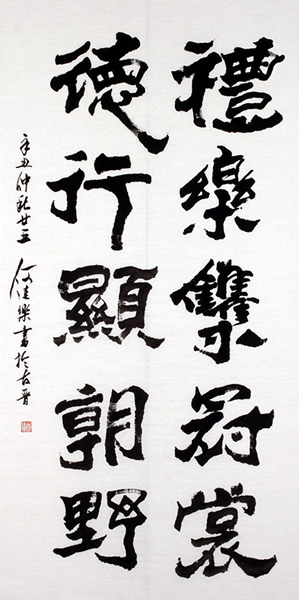 禮樂雧冠裳
德行顯朝野
辛丑仲秋廿五 何佳樂書於古晉